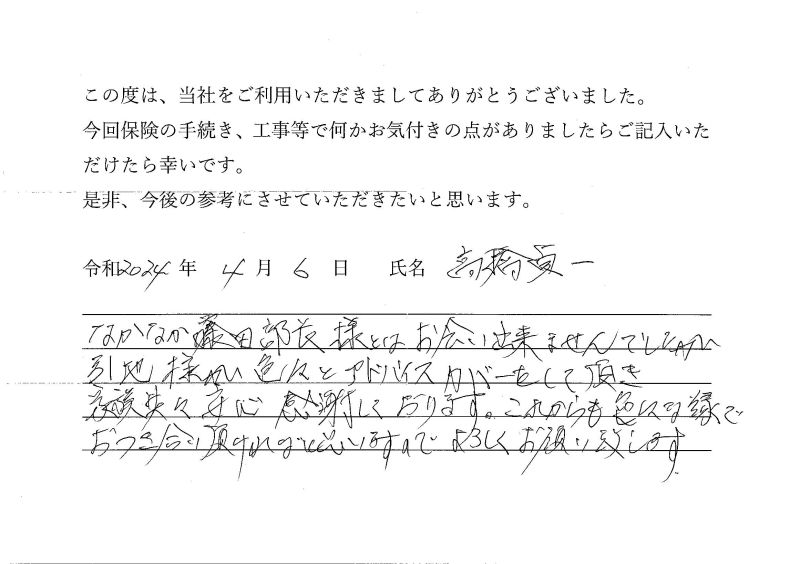 この度は、当社をご利用いただきましてありがとうございました。
今回保険の手続き、工事等で何かお気付きの点がありましたらご記入いた
だけたら幸いです。
是非、今後の参考にさせていただきたいと思います。
令和2024年 4月 6日 氏名 高橋貞一
なかなか藤田部長様とはお会い出来ませんでしたが
引地様が色々とアドバイスカバーをして頂き
安心感謝しております。これからも色々な縁で
おつき合い頂ければと思いますのでよろしくお願い致します